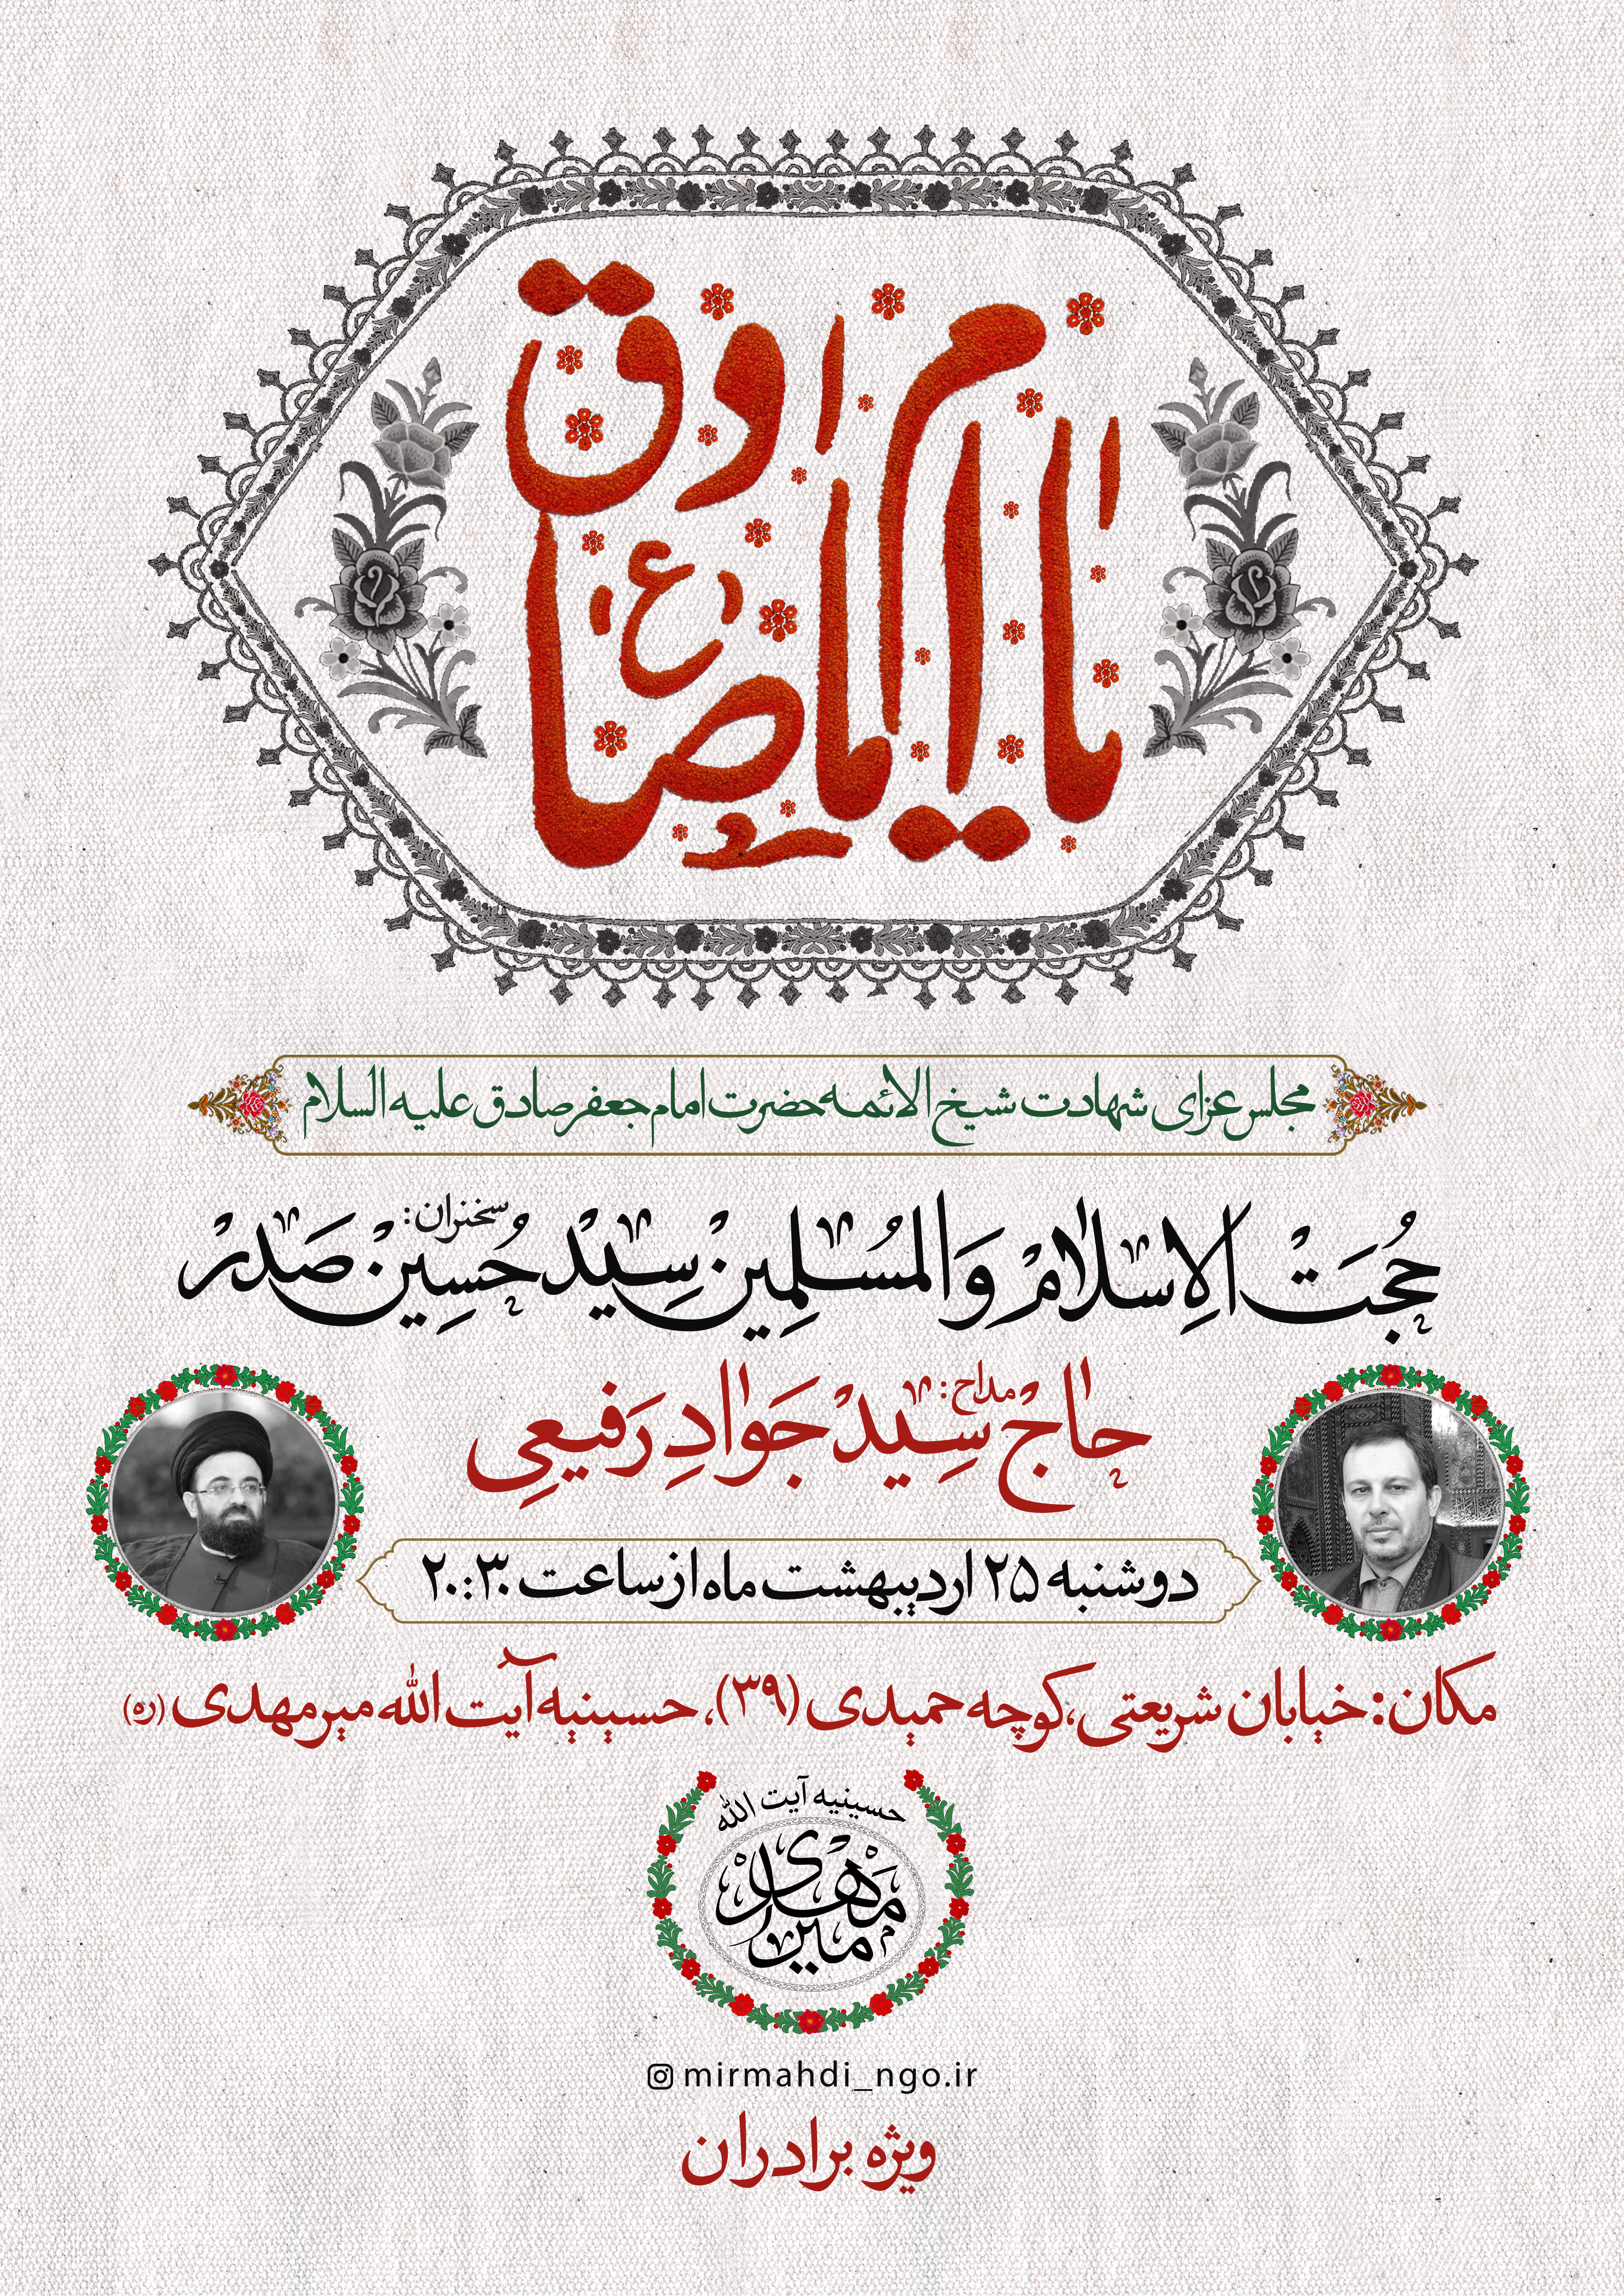 یا امام صادق (ع)
مجلس عزای شهادت شیخ الائمه حضرت امام جعفر صادق علیه السلام
سخنران:
حُجَتْ الاِسلامْ وَالمُسْلِمِینْ سِیِدْ حُسِینْ صَدرْ
مداح:
حاجْ سِیِدْ جَوادِ رَفیعِی
دوشنبه ۲۵ اردیبهشت ماه از ساعت ۲۰:۳۰
مکان: خیابان شریعتی، کوچه حمیدی (۳۹)، حسینیه آیت الله میرمهدی (ره)
حسینیه آیت الله
میرمهدی
mirmahdi_ngo.ir
ویژه برادران